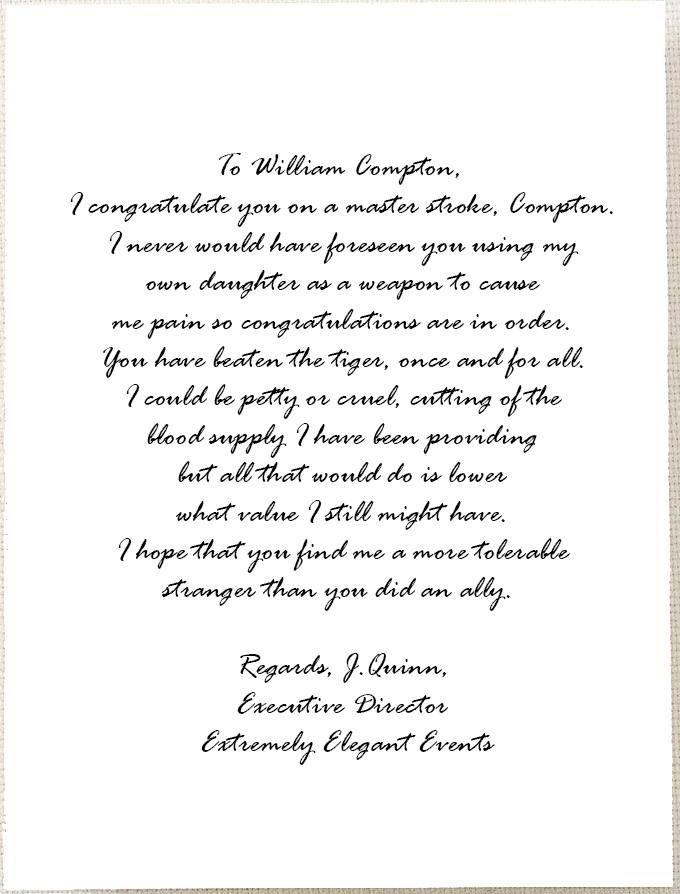 To William Compton,
I congratulate you on a master stroke, Compton.
I never would have foreseen you using my
own daughter as a weapon to cause
me pain so congratulations are in order.
You have beaten the tiger, once and for all.
I could be petty or cruel, cutting of the
blood supply I have been providing
but all that would do is lower
what value I still might have.
I hope that you find me a more tolerable
stranger than you did an ally.
Regards, J.Quinn,
Executive Director
Extremely Elegant Events